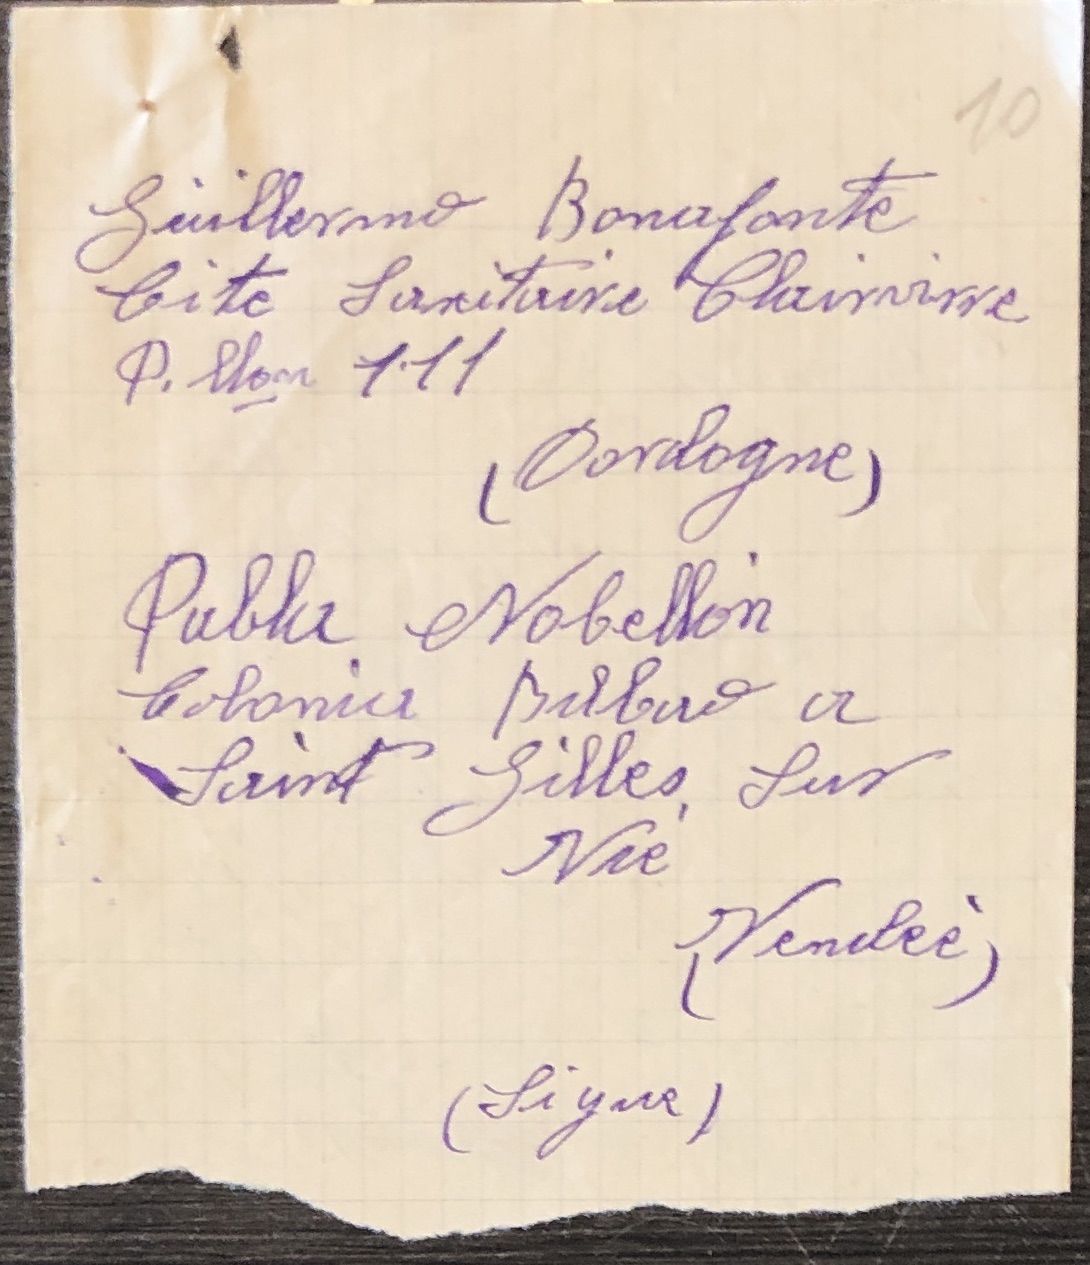 10
Guillermo Bonafonte
Cite Sanitaire Clairvivre
P. llon 111
(Dordogne)
Pabla Nobellon
Colonia Bilbao a
Saint Gilles, Sur
Vie
(Vendeè)
(Sigue)